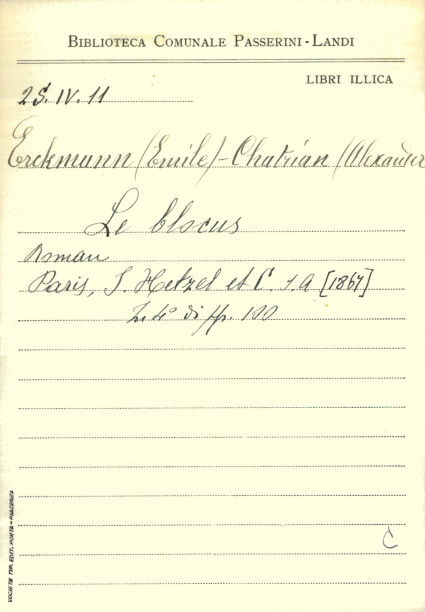 BIBLIOTECA COMUNALE PASSERINI-LANDI
LIBRI ILLICA
2S.IV.11
Erckmann (Emile)-Chatrian (Alexander
Le blocus
Roman
Paris, J. Hetzel et C. s.a [1867]
In 4° di pp. 100
C
SOCIETÀ TIP. EDIT. PORTA - PIACENZA